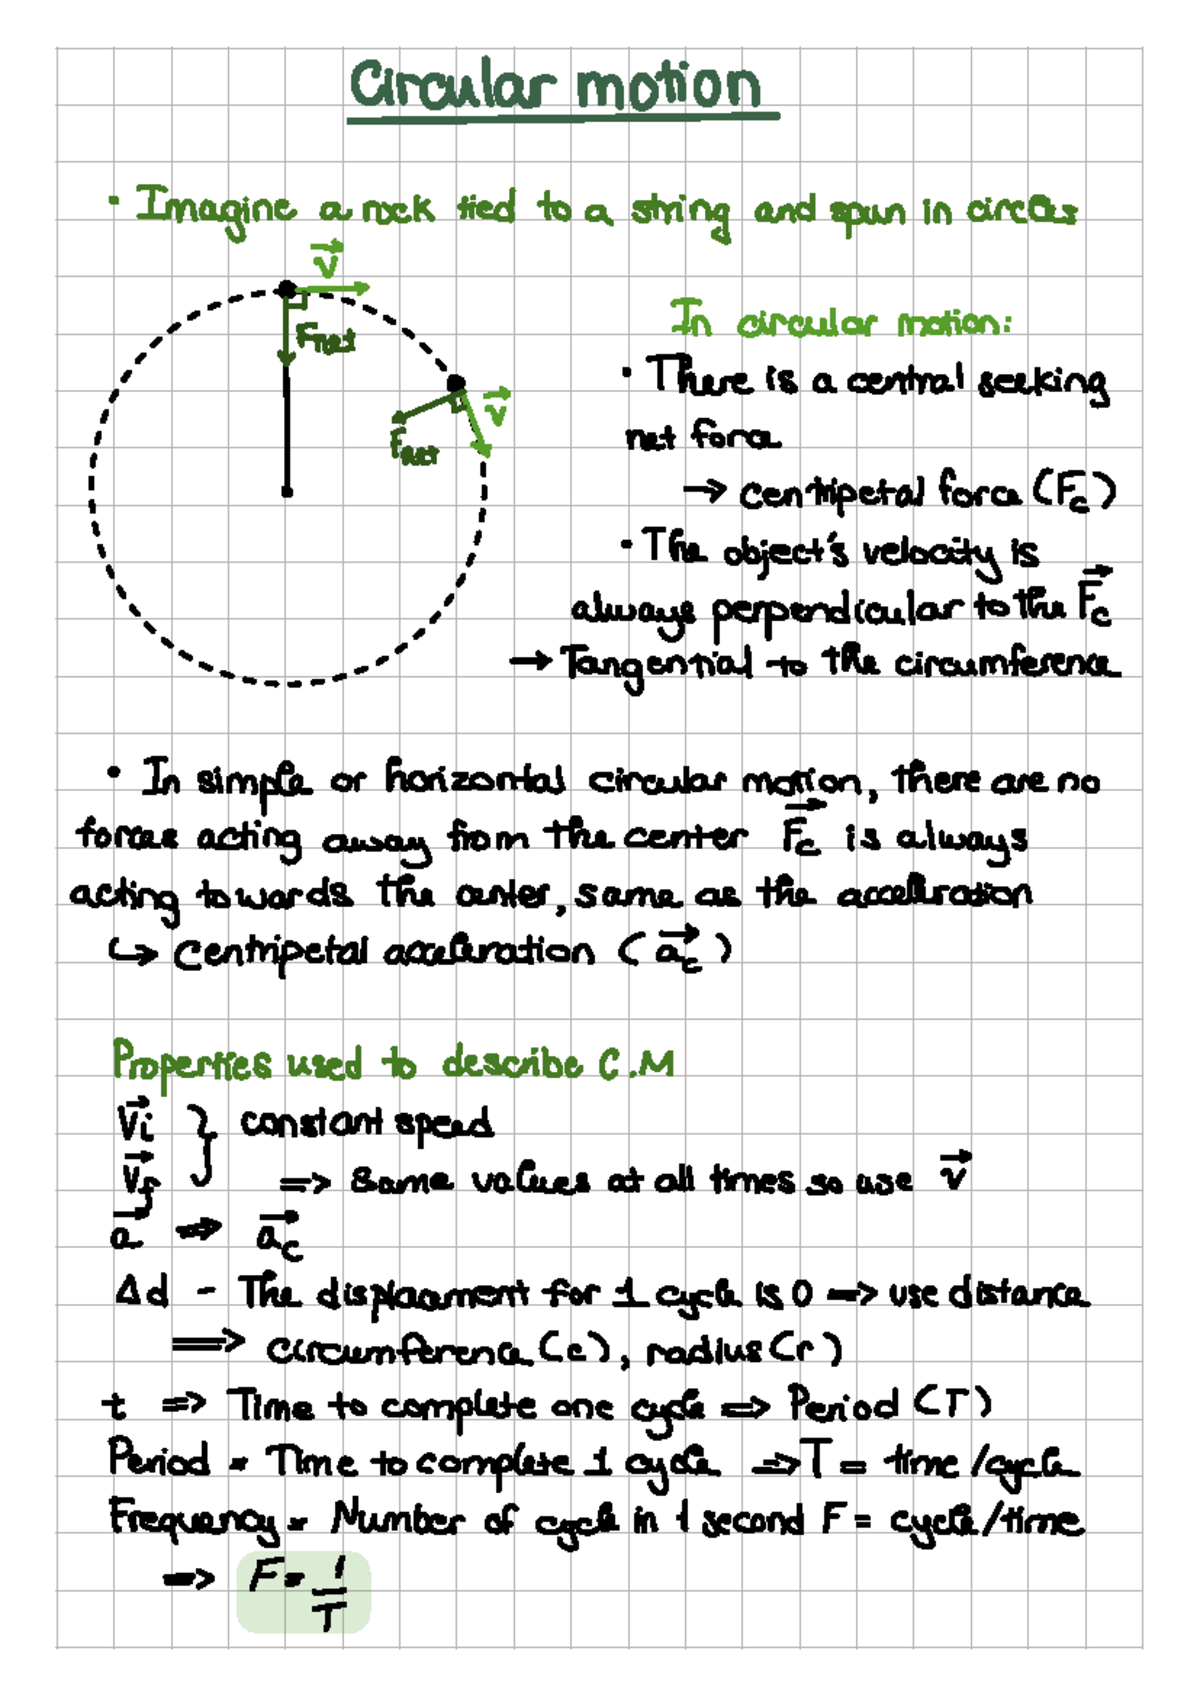 Circular motion
• Imagine a rock tied to a string and spun in circles
v⃗
Fnet
v⃗
Fnet
In circular motion:
• There is a central seeking
net force
→ centripetal force (Fc)
• The object's velocity is
always perpendicular to the F⃗c
→ Tangential to the circumference
• In simple or horizontal circular motion, there are no
forces acting away from the center F⃗c is always
acting towards the center, same as the acceleration
↳ Centripetal acceleration (a⃗c)
Properties used to describe C.M
v⃗i } constant speed
v⃗f => Same values at all times so use v⃗
a⃗ => a⃗c
Δd - The displacement for 1 cycle is 0 => use distance
=> circumference (c), radius (r)
t => Time to complete one cycle => Period (T)
Period = Time to complete 1 cycle => T = time/cycle
Frequency = Number of cycle in 1 second F = cycle/time
=> F = 1/T